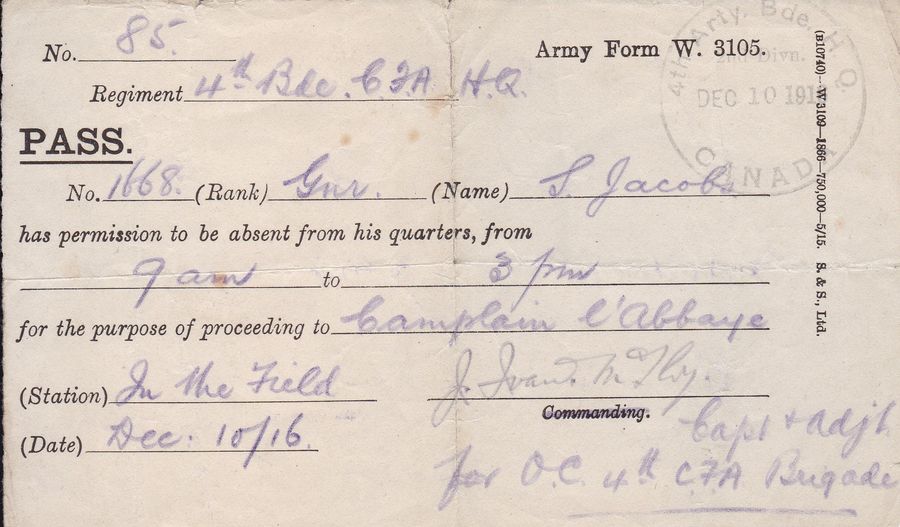 No. 85.
Army Form W. 3105.
Regiment 4th Bde. C.F.A. H.Q.
4th Arty. Bde. H.Q.
2nd Divn.
DEC 10 191
CANADA
PASS.
No. 1668. (Rank) Gnr. (Name) S. Jacobs
has permission to be absent from his quarters, from
9 am to 3 pm
for the purpose of proceeding to Camplain l'Abbaye
(Station) In the Field
J. Ivan
Commanding.
(Date) Dec: 10/16.
Capt & adjt.
for O.C. 4th C.F.A. Brigade
(B10740)—W3109—1866—750,000—5/15. S. & S., Ltd.